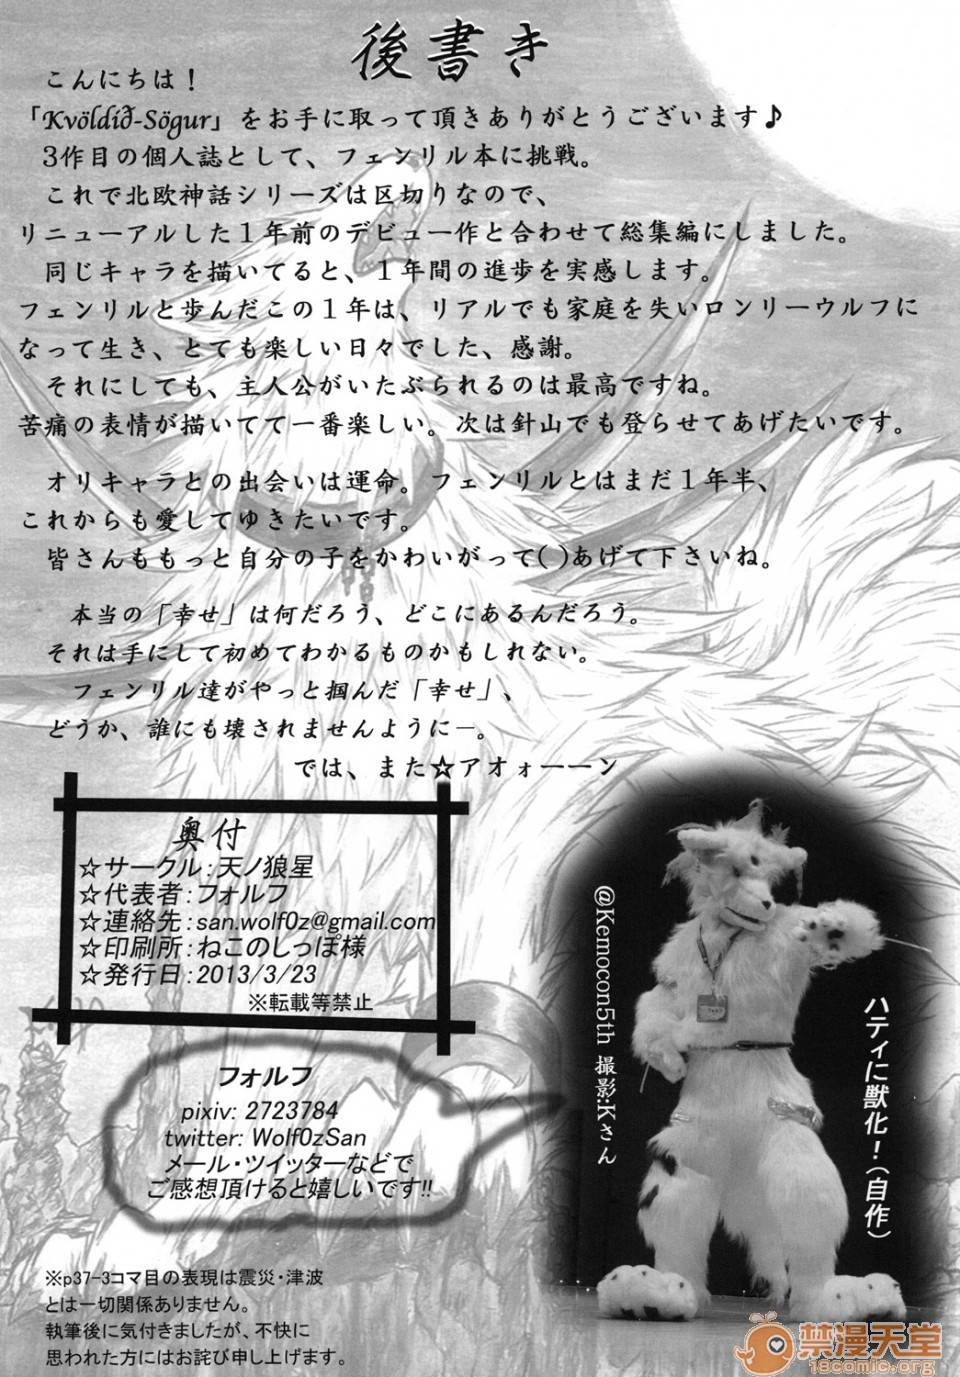 後書き
こんにちは！
「Kvöldið-Sögur」をお手に取って頂きありがとうございます♪
3作目の個人誌として、フェンリル本に挑戦。
これで北欧神話シリーズは区切りなので、
リニューアルした１年前のデビュー作と合わせて総集編にしました。
同じキャラを描いてると、１年間の進歩を実感します。
フェンリルと歩んだこの１年は、リアルでも家庭を失いロンリーウルフに
なって生き、とても楽しい日々でした、感謝。
それにしても、主人公がいたぶられるのは最高ですね。
苦痛の表情が描いてて一番楽しい。次は針山でも登らせてあげたいです。
オリキャラとの出会いは運命。フェンリルとはまだ１年半、
これからも愛してゆきたいです。
皆さんももっと自分の子をかわいがって( )あげて下さいね。
本当の「幸せ」は何だろう、どこにあるんだろう。
それは手にして初めてわかるものかもしれない。
フェンリル達がやっと掴んだ「幸せ」、
どうか、誰にも壊されませんように―。
では、また☆アオォーーン
奥付
☆サークル：天ノ狼星
☆代表者：フォルフ
☆連絡先：san.wolf0z@gmail.com
☆印刷所：ねこのしっぽ様
☆発行日：2013/3/23
※転載等禁止
フォルフ
pixiv: 2723784
twitter: Wolf0zSan
メール・ツイッターなどで
ご感想頂けると嬉しいです!!
@Kemocon5th 撮影:Kさん
ハティに獣化！(自作)
※p37-3コマ目の表現は震災・津波
とは一切関係ありません。
執筆後に気付きましたが、不快に
思われた方にはお詫び申し上げます。
禁漫天堂
18comic.org